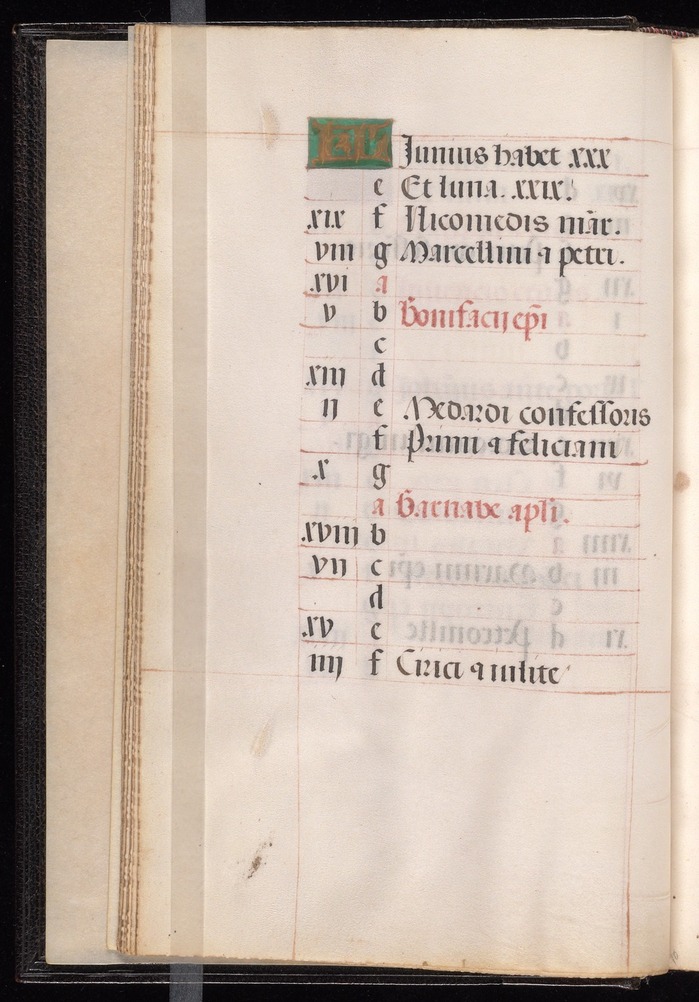 KL Junius habet xxx
e Et luna. xxix.
xix f Nicomedis mãr.
viii g Marcellini ⁊ petri.
xvi a
v b Bonifacij ep̃i
c
xiii d
ij e Medardi confessoris
f Primi ⁊ feliciani
x g
a Barnabe apl̃i.
xviii b
vij c
d
xv e
iiij f Cirici ⁊ iulite